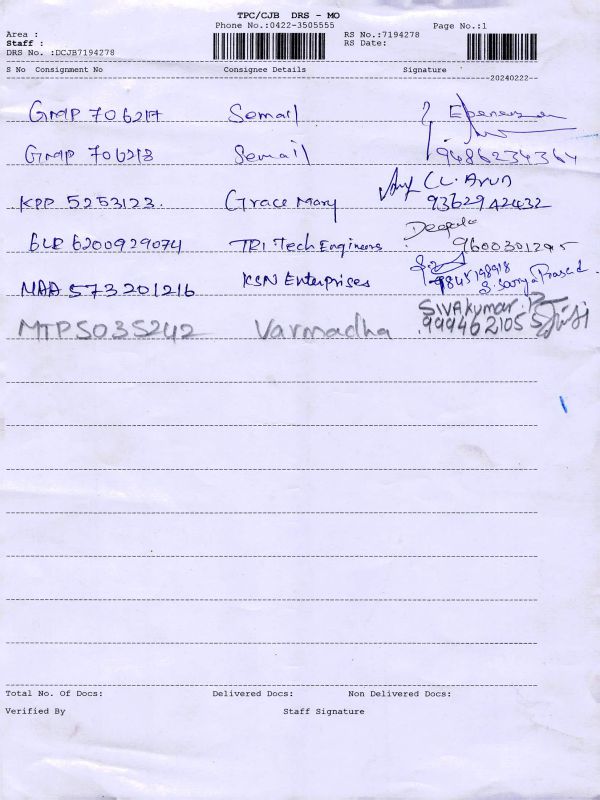 TPC/CJB DRS - MO
Phone No.:0422-3505555 Page No.:1
Area :
Staff : RS No.:7194278
DRS No. :DCJB7194278 RS Date:
S No Consignment No Consignee Details Signature
20240222--
GMP 706217 Semail
GMP 706218 Semail 9486234364
KPP 5253123. Grace Mary CL. Arun 9362942432
BLR 6200929074 TRI Tech Engineers Deepala 9600301295
MAA 573201216 KSN Enterprises 9845198918 S. Sooryaprasad.
MTP5035242 Varmadha Sivakumar.P 9994621055
Total No. Of Docs: Delivered Docs: Non Delivered Docs:
Verified By Staff Signature